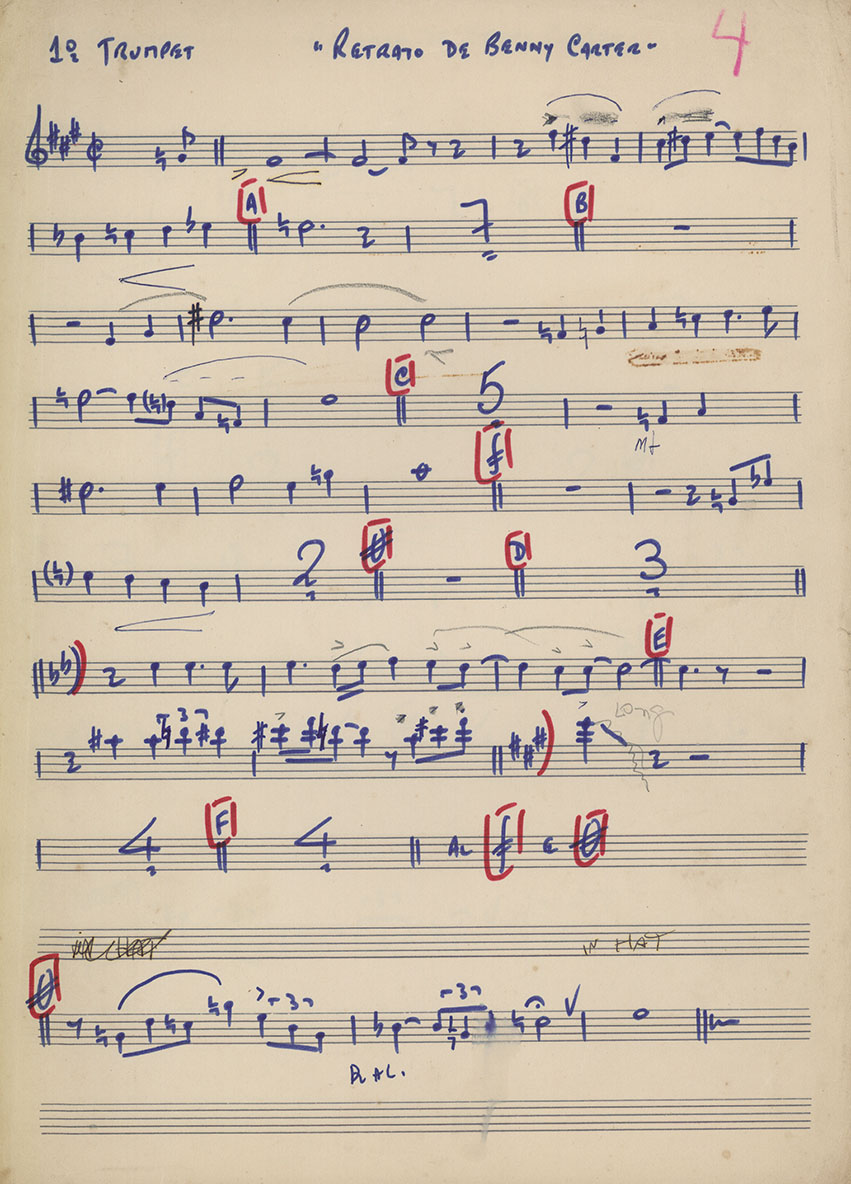 1º TRUMPET "RETRATO DE BENNY CARTER" 4
A 7 B
C 5
mf
2 D 3
E
3
4 F 4 AL E
IN HAT
3 3
RAL.